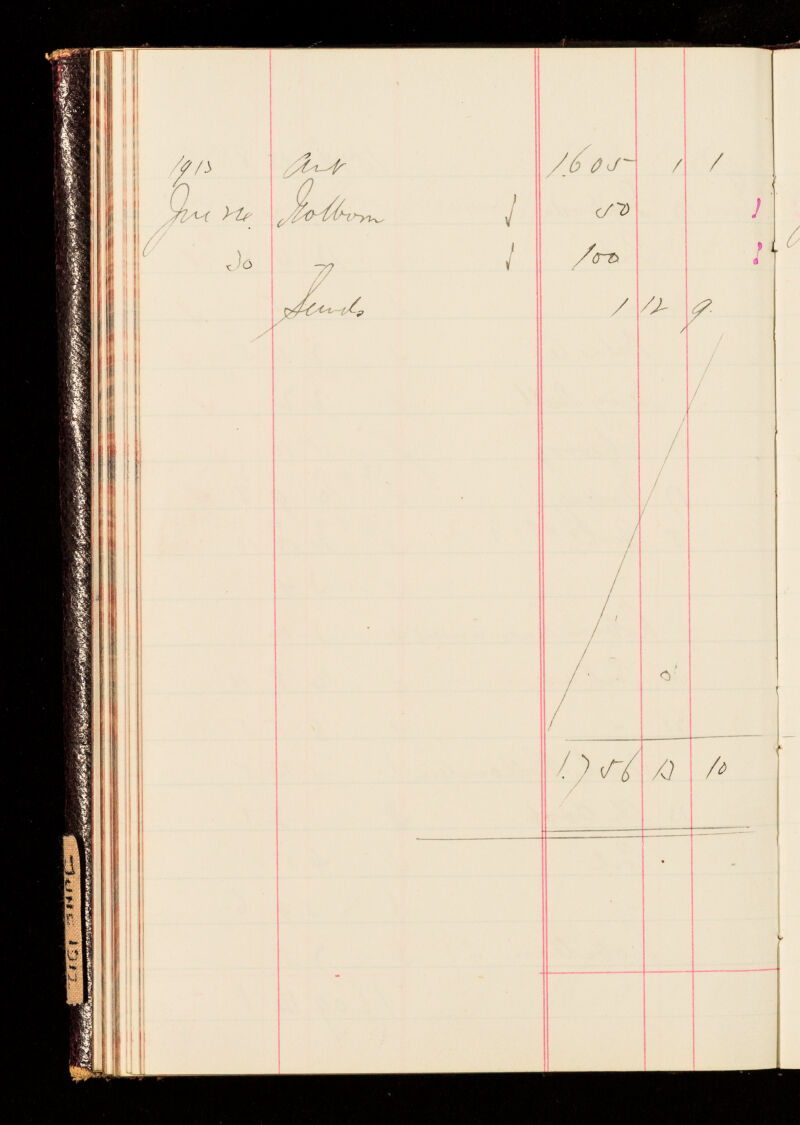 1913 amt 1.605 1 1
June Holborn 50
30 100
1 12 9
1.756 13 10
JUNE 1913